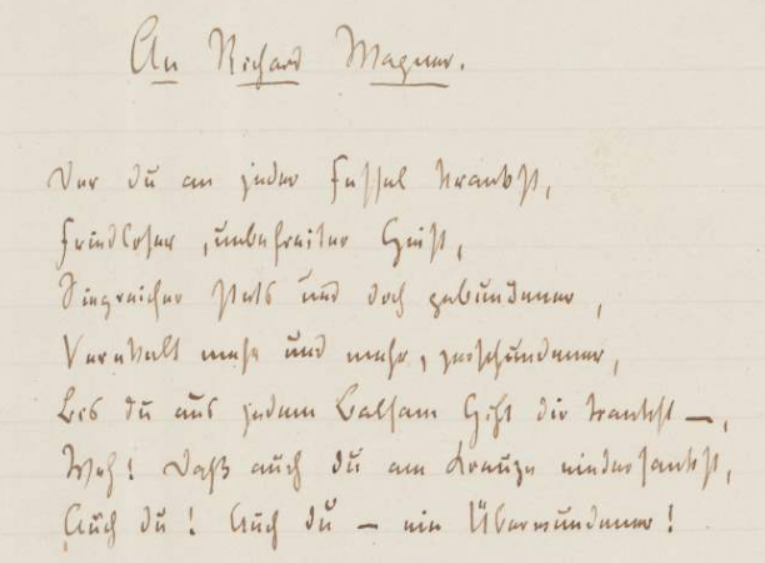 An Richard Wagner.
Der du an jeder Fessel krankst,
Friedloser, unbefreiter Geist,
Siegreicher stets und doch gebundener,
Verekelt mehr und mehr, zerschundener,
Bis du aus jedem Balsam Gift dir trankst —,
Weh! Daß auch du am Kreuze niedersankst,
Auch du! Auch du — ein Überwundener!